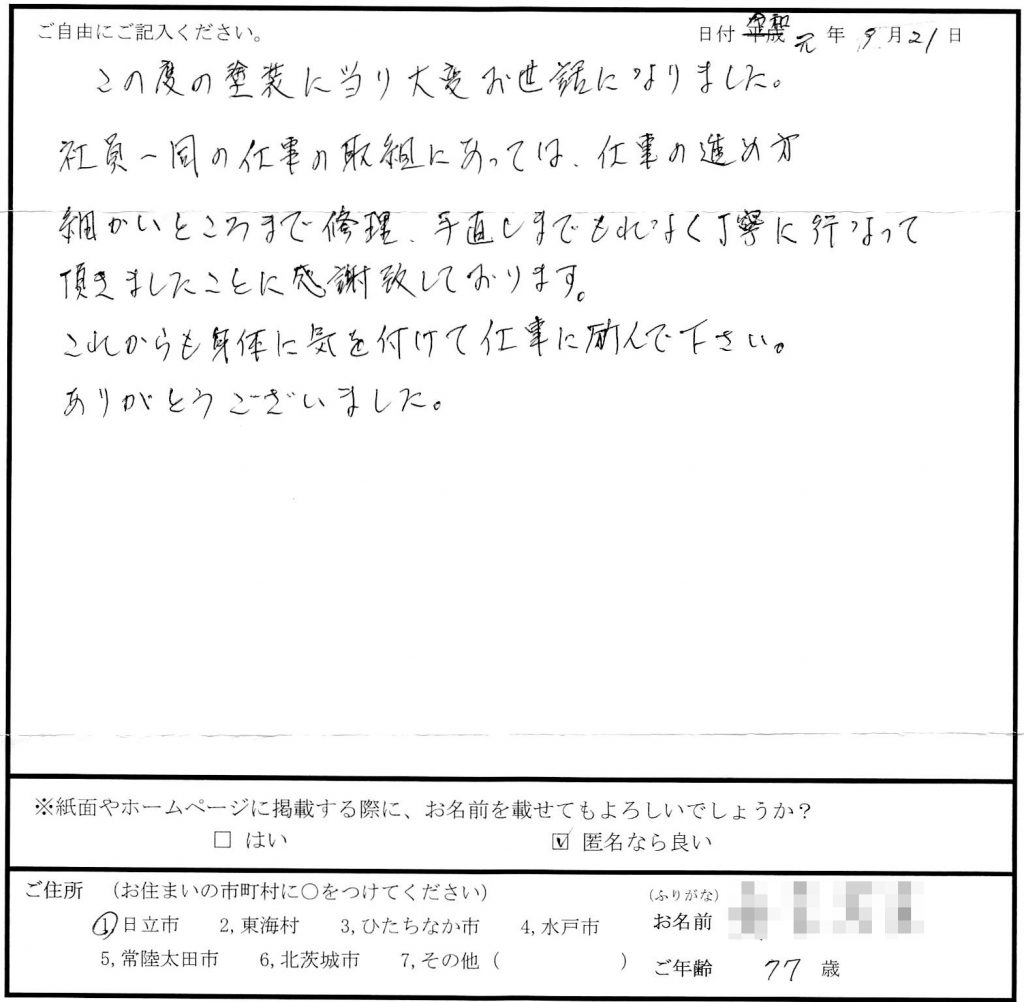 ご自由にご記入ください。
日付 令和 元 年 9 月 21 日
この度の塗装に当り大変お世話になりました。
社員一同の仕事の取組にあっては、仕事の進め方
細かいところまで修理、手直しまでもれなく丁寧に行なって
頂きましたことに感謝致しております。
これからも身体に気を付けて仕事に励んで下さい。
ありがとうございました。
※紙面やホームページに掲載する際に、お名前を載せてもよろしいでしょうか?
□ はい ☑ 匿名なら良い
ご住所 (お住まいの市町村に○をつけてください)
1, 日立市 2, 東海村 3, ひたちなか市 4, 水戸市
5, 常陸太田市 6, 北茨城市 7, その他 ( )
(ふりがな)
お名前
ご年齢 77 歳